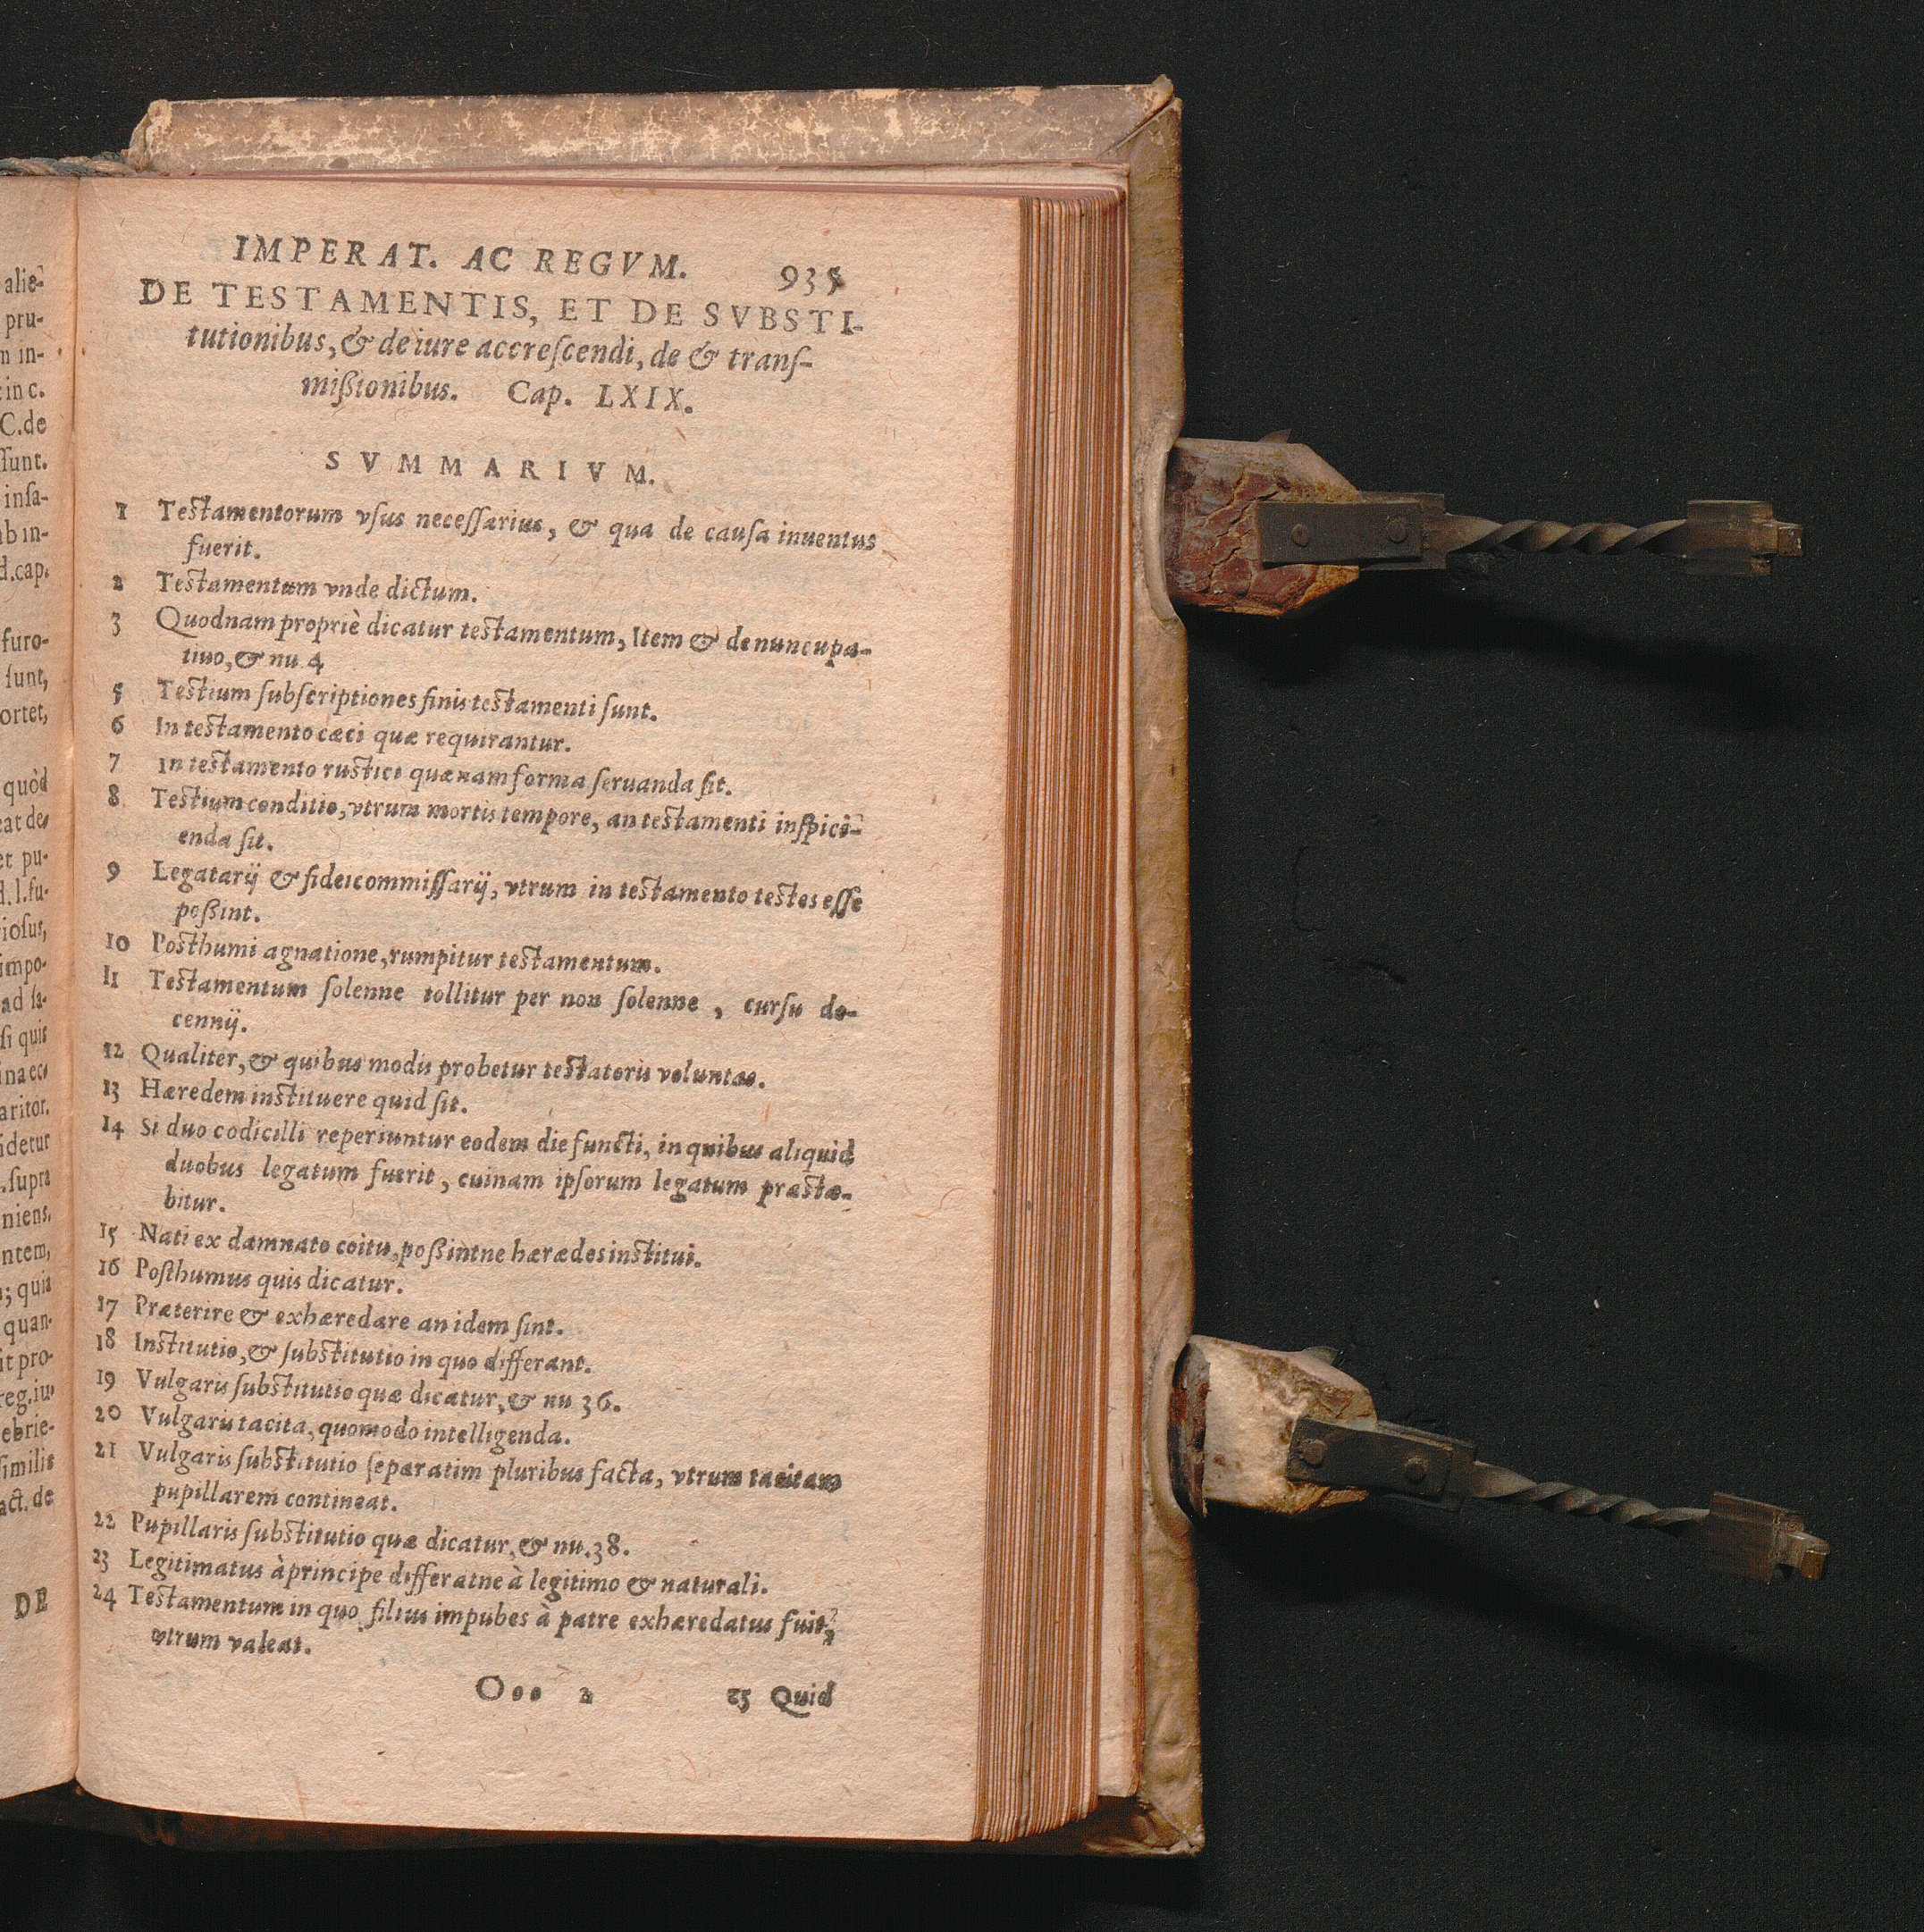 alie-
pru-
m in-
in c.
C.de
ſunt.
inſa-
ab in-
d.cap.
furo-
ſunt,
ortet,
quòd
eat de
et pu-
d.l.fu-
rioſus,
impo-
ad ſa-
ſi quis
aritor.
idetur
.ſupra
niens.
ntem,
; quia
quan-
it pro-
reg.iu
ebrie-
ſimilis
act. de
DE
IMPERAT. AC REGVM. 935
DE TESTAMENTIS, ET DE SVBSTI-
tutionibus, & de iure accreſcendi, de & tranſ-
mißionibus. Cap. LXIX.
SVMMARIVM.
1 Testamentorum vſus neceſſarius, & qua de cauſa inuentus
fuerit.
2 Testamentum vnde dictum.
3 Quodnam propriè dicatur testamentum, Item & de nuncupa-
tiuo, & nu 4
5 Testium ſubſcriptiones finis testamenti ſunt.
6 In testamento cæci quæ requirantur.
7 In testamento rustici quænam forma ſeruanda ſit.
8 Testium conditio, vtrum mortis tempore, an testamenti inſpici-
enda ſit.
9 Legatarij & fideicommiſſarij, vtrum in testamento testes eſſe
poßint.
10 Posthumi agnatione, rumpitur testamentum.
11 Testamentum ſolenne tollitur per non ſolenne, curſu de-
cennij.
12 Qualiter, & quibus modis probetur testatoris voluntas.
13 Hæredem instituere quid ſit.
14 Si duo codicilli reperiuntur eodem die functi, in quibus aliquid
duobus legatum fuerit, cuinam ipſorum legatum præsta-
bitur.
15 Nati ex damnato coitu, poßintne hærædes institui.
16 Poſthumus quis dicatur.
17 Præterire & exhæredare an idem ſint.
18 Institutio, & ſubstitutio in quo differant.
19 Vulgaris ſubstitutio quæ dicatur, & nu 36.
20 Vulgaris tacita, quomodo intelligenda.
21 Vulgaris ſubstitutio ſeparatim pluribus facta, vtrum tacitam
pupillarem contineat.
22 Pupillaris ſubstitutio quæ dicatur, & nu. 38.
23 Legitimatus à principe differatne à legitimo & naturali.
24 Testamentum in quo filius impubes à patre exhæredatus fuit,
vtrum valeat.
Ooo 2 25 Quid